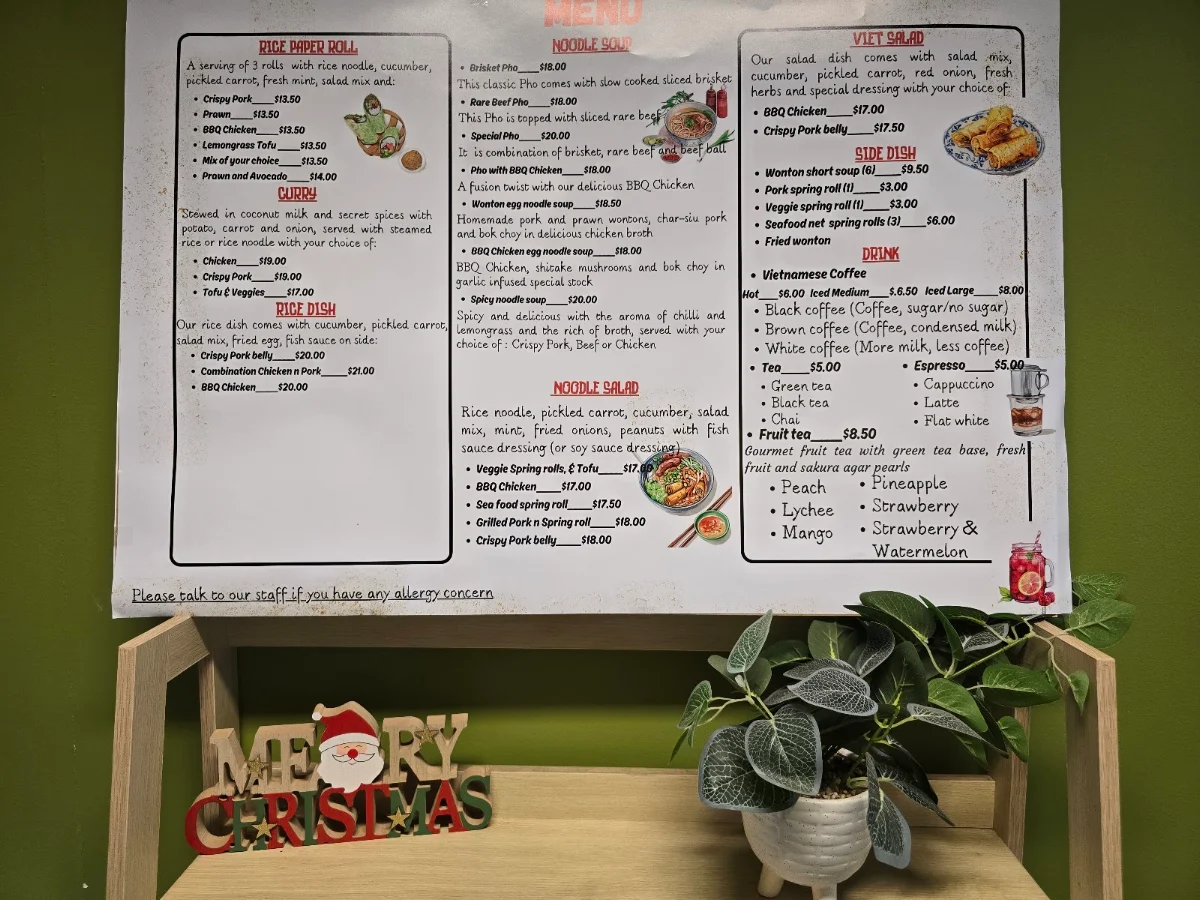 MENU
RICE PAPER ROLL
A serving of 3 rolls with rice noodle, cucumber,
pickled carrot, fresh mint, salad mix and:
• Crispy Pork____$13.50
• Prawn____$13.50
• BBQ Chicken____$13.50
• Lemongrass Tofu____$13.50
• Mix of your choice____$13.50
• Prawn and Avocado____$14.00
CURRY
Stewed in coconut milk and secret spices with
potato, carrot and onion, served with steamed
rice or rice noodle with your choice of:
• Chicken____$19.00
• Crispy Pork____$19.00
• Tofu & Veggies____$17.00
RICE DISH
Our rice dish comes with cucumber, pickled carrot,
salad mix, fried egg, fish sauce on side:
• Crispy Pork belly____$20.00
• Combination Chicken n Pork____$21.00
• BBQ Chicken____$20.00
NOODLE SOUP
• Brisket Pho____$18.00
This classic Pho comes with slow cooked sliced brisket
• Rare Beef Pho____$18.00
This Pho is topped with sliced rare beef
• Special Pho____$20.00
It is combination of brisket, rare beef and beef ball
• Pho with BBQ Chicken____$18.00
A fusion twist with our delicious BBQ Chicken
• Wonton egg noodle soup____$18.50
Homemade pork and prawn wontons, char-siu pork
and bok choy in delicious chicken broth
• BBQ Chicken egg noodle soup____$18.00
BBQ Chicken, shitake mushrooms and bok choy in
garlic infused special stock
• Spicy noodle soup____$20.00
Spicy and delicious with the aroma of chilli and
lemongrass and the rich of broth, served with your
choice of : Crispy Pork, Beef or Chicken
NOODLE SALAD
Rice noodle, pickled carrot, cucumber, salad
mix, mint, fried onions, peanuts with fish
sauce dressing (or soy sauce dressing)
• Veggie Spring rolls, & Tofu____$17.00
• BBQ Chicken____$17.00
• Sea food spring roll____$17.50
• Grilled Pork n Spring roll____$18.00
• Crispy Pork belly____$18.00
VIET SALAD
Our salad dish comes with salad mix,
cucumber, pickled carrot, red onion, fresh
herbs and special dressing with your choice of:
• BBQ Chicken____$17.00
• Crispy Pork belly____$17.50
SIDE DISH
• Wonton short soup (6)____$9.50
• Pork spring roll (1)____$3.00
• Veggie spring roll (1)____$3.00
• Seafood net spring rolls (3)____$6.00
• Fried wonton
DRINK
• Vietnamese Coffee
Hot____$6.00 Iced Medium____$.6.50 Iced Large____$8.00
• Black coffee (Coffee, sugar/no sugar)
• Brown coffee (Coffee, condensed milk)
• White coffee (More milk, less coffee)
• Tea____$5.00
• Green tea
• Black tea
• Chai
• Espresso____$5.00
• Cappuccino
• Latte
• Flat white
• Fruit tea____$8.50
Gourmet fruit tea with green tea base, fresh
fruit and sakura agar pearls
• Peach
• Lychee
• Mango
• Pineapple
• Strawberry
• Strawberry &
Watermelon
Please talk to our staff if you have any allergy concern
MERRY
CHRISTMAS